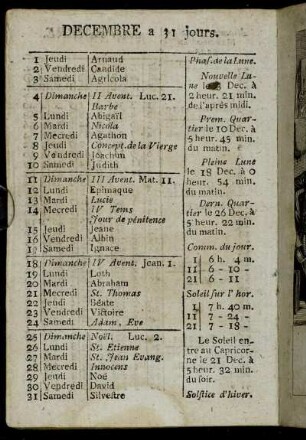 DECEMBRE a 31 jours.
1 Jeudi Arnaud
2 Vendredi Candide
3 Samedi Agricola
4 Dimanche II Avent. Luc. 21.
Barbe
5 Lundi Abigaïl
6 Mardi Nicola
7 Mecredi Agathon
8 Jeudi Concept. de la Vierge
9 Vendredi Joachim
10 Samedi Judith
11 Dimanche III Avent. Mat. 11.
12 Lundi Epimaque
13 Mardi Lucie
14 Mecredi IV Tems
Jour de pénitence
15 Jeudi Jeane
16 Vendredi Albin
17 Samedi Ignace
18 Dimanche IV Avent. Jean. 1.
19 Lundi Loth
20 Mardi Abraham
21 Mecredi St. Thomas
22 Jeudi Béate
23 Vendredi Victoire
24 Samedi Adam, Eve
25 Dimanche Noël. Luc. 2.
26 Lundi St. Etienne
27 Mardi St. Jean Evang.
28 Mecredi Innocens
29 Jeudi Noé
30 Vendredi David
31 Samedi Silvestre
Phas. de la Lune.
Nouvelle Lu-
ne le Dec. à
2 heur. 21 min.
de l'après midi.
Prem. Quar-
tier le 10 Dec. à
5 heur. 45 min.
du matin.
Pleine Lune
le 18 Dec. à 0
heur. 54 min.
du matin.
Dern. Quar-
tier le 26 Dec. à
5 heur. 22 min.
du matin.
Comm. du jour.
1 6 h. 4 m.
11 6 - 10 -
21 6 - 11
Soleil sur l'hor.
1 7 h. 40 m.
11 7 - 24 -
21 7 - 18 -
Le Soleil en-
tre au Capricor-
ne le 21 Dec. à
5 heur. 32 min.
du soir.
Solstice d'hiver.